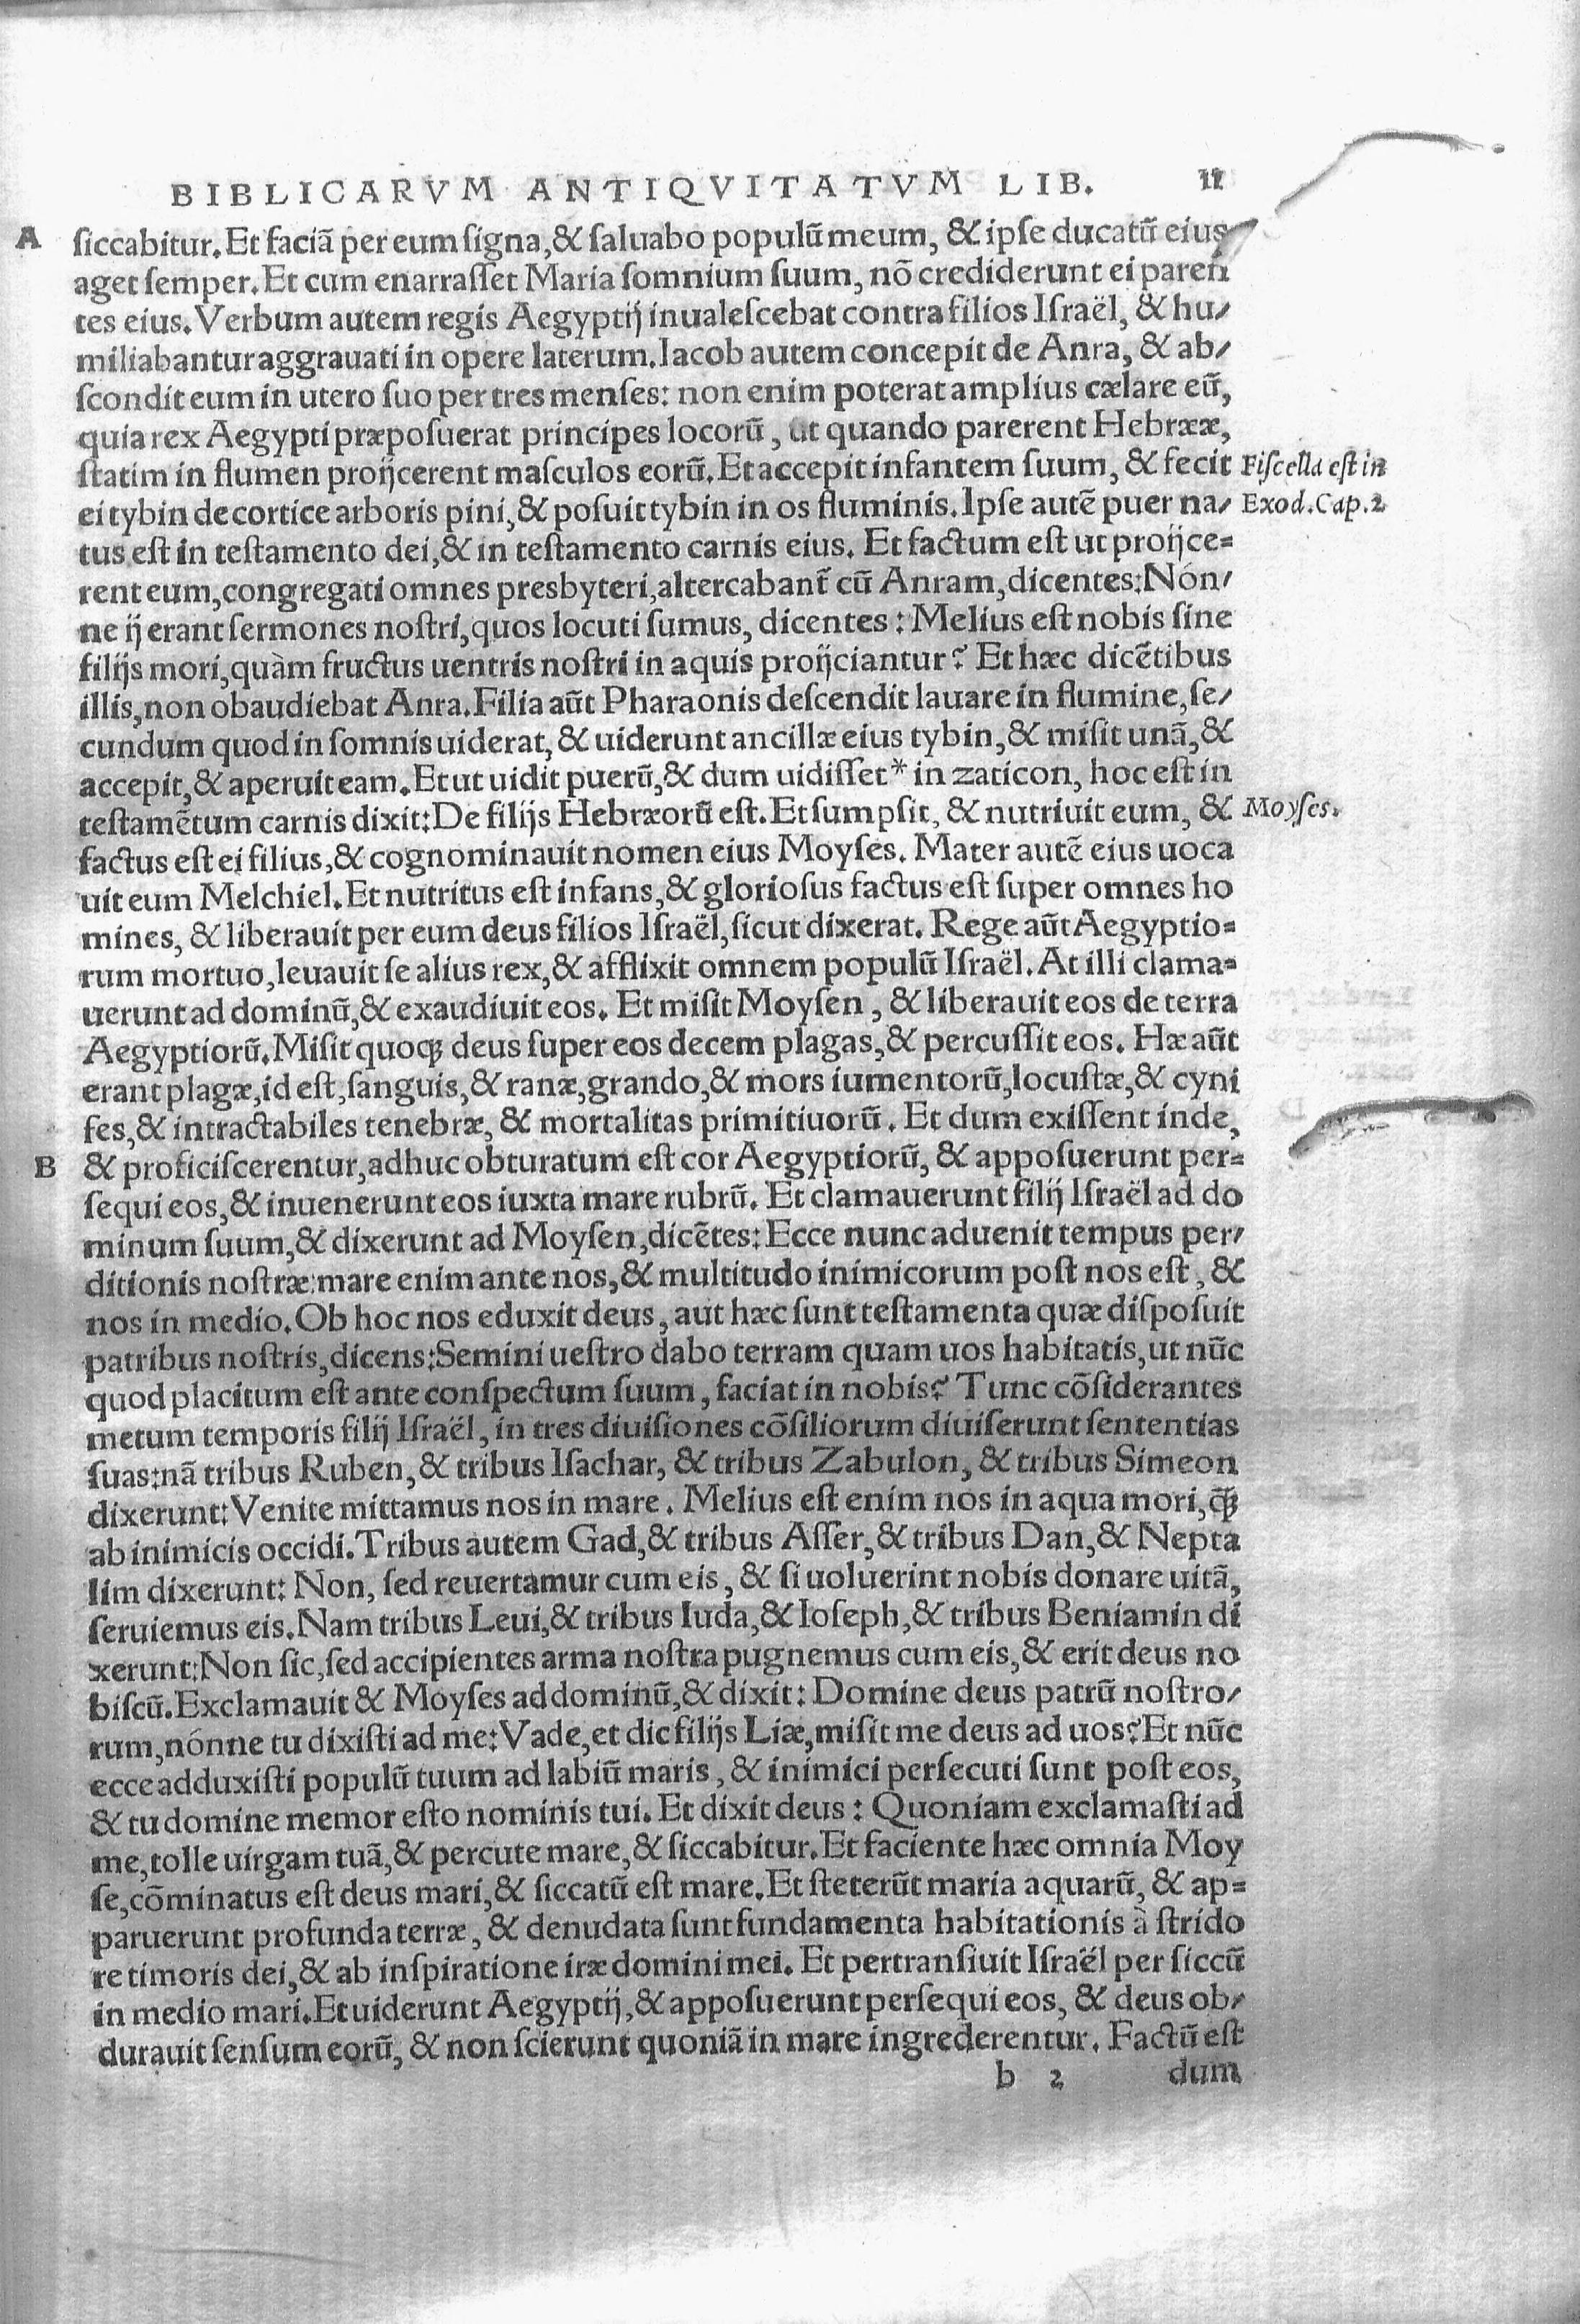 BIBLICARVM ANTIQVITATVM LIB. 11
A siccabitur. Et faciã per eum signa, & saluabo populũ meum, & ipse ducatũ eius
aget semper. Et cum enarrasset Maria somnium suum, nõ crediderunt ei paren
tes eius. Verbum autem regis Aegyptij inualescebat contra filios Israël, & hu/
miliabantur aggrauati in opere laterum. Iacob autem concepit de Anra, & ab/
scondit eum in utero suo per tres menses: non enim poterat amplius cælare eũ,
quia rex Aegypti præposuerat principes locorũ, ut quando parerent Hebrææ,
statim in flumen proijcerent masculos eorũ. Et accepit infantem suum, & fecit Fiscella est in
ei tybin de cortice arboris pini, & posuit tybin in os fluminis. Ipse autẽ puer na/ Exod. Cap. 2
tus est in testamento dei, & in testamento carnis eius. Et factum est ut proijce=
rent eum, congregati omnes presbyteri, altercabant̃ cũ Anram, dicentes: Nón/
ne ij erant sermones nostri, quos locuti sumus, dicentes: Melius est nobis sine
filijs mori, quàm fructus uentris nostri in aquis proijciantur? Et hæc dicẽtibus
illis, non obaudiebat Anra. Filia aũt Pharaonis descendit lauare in flumine, se/
cundum quod in somnis uiderat, & uiderunt ancillæ eius tybin, & misit unã, &
accepit, & aperuit eam. Et ut uidit puerũ, & dum uidisset * in zaticon, hoc est in
testamẽtum carnis dixit: De filijs Hebræorũ est. Et sumpsit, & nutriuit eum, & Moyses.
factus est ei filius, & cognominauit nomen eius Moyses. Mater autẽ eius uoca
uit eum Melchiel. Et nutritus est infans, & gloriosus factus est super omnes ho
mines, & liberauit per eum deus filios Israël, sicut dixerat. Rege aũt Aegyptio=
rum mortuo, leuauit se alius rex, & afflixit omnem populũ Israël. At illi clama=
uerunt ad dominũ, & exaudiuit eos. Et misit Moysen, & liberauit eos de terra
Aegyptiorũ. Misit quoqꝫ deus super eos decem plagas, & percussit eos. Hæ aũt
erant plagæ, id est, sanguis, & ranæ, grando, & mors iumentorũ, locustæ, & cyni
fes, & intractabiles tenebræ, & mortalitas primitiuorũ. Et dum exissent inde,
B & proficiscerentur, adhuc obturatum est cor Aegyptiorũ, & apposuerunt per=
sequi eos, & inuenerunt eos iuxta mare rubrũ. Et clamauerunt filij Israël ad do
minum suum, & dixerunt ad Moysen, dicẽtes: Ecce nunc aduenit tempus per/
ditionis nostræ: mare enim ante nos, & multitudo inimicorum post nos est, &
nos in medio. Ob hoc nos eduxit deus, aut hæc sunt testamenta quæ disposuit
patribus nostris, dicens: Semini uestro dabo terram quam uos habitatis, ut nũc
quod placitum est ante conspectum suum, faciat in nobis? Tunc cõsiderantes
metum temporis filij Israël, in tres diuisiones cõsiliorum diuiserunt sententias
suas: nã tribus Ruben, & tribus Isachar, & tribus Zabulon, & tribus Simeon
dixerunt: Venite mittamus nos in mare. Melius est enim nos in aqua mori, q̃ꝫ
ab inimicis occidi. Tribus autem Gad, & tribus Asser, & tribus Dan, & Nepta
lim dixerunt: Non, sed reuertamur cum eis, & si uoluerint nobis donare uitã,
seruiemus eis. Nam tribus Leui, & tribus Iuda, & Ioseph, & tribus Beniamin di
xerunt: Non sic, sed accipientes arma nostra pugnemus cum eis, & erit deus no
biscũ. Exclamauit & Moyses ad dominũ, & dixit: Domine deus patrũ nostro/
rum, nónne tu dixisti ad me: Vade, et dic filijs Liæ, misit me deus ad uos? Et nũc
ecce adduxisti populũ tuum ad labiũ maris, & inimici persecuti sunt post eos,
& tu domine memor esto nominis tui. Et dixit deus: Quoniam exclamasti ad
me, tolle uirgam tuã, & percute mare, & siccabitur. Et faciente hæc omnia Moy
se, cõminatus est deus mari, & siccatũ est mare. Et steterũt maria aquarũ, & ap=
paruerunt profunda terræ, & denudata sunt fundamenta habitationis à strido
re timoris dei, & ab inspiratione iræ domini mei. Et pertransiuit Israël per siccũ
in medio mari. Et uiderunt Aegyptij, & apposuerunt persequi eos, & deus ob/
durauit sensum eorũ, & non scierunt quoniã in mare ingrederentur. Factũ est
b 2 dum